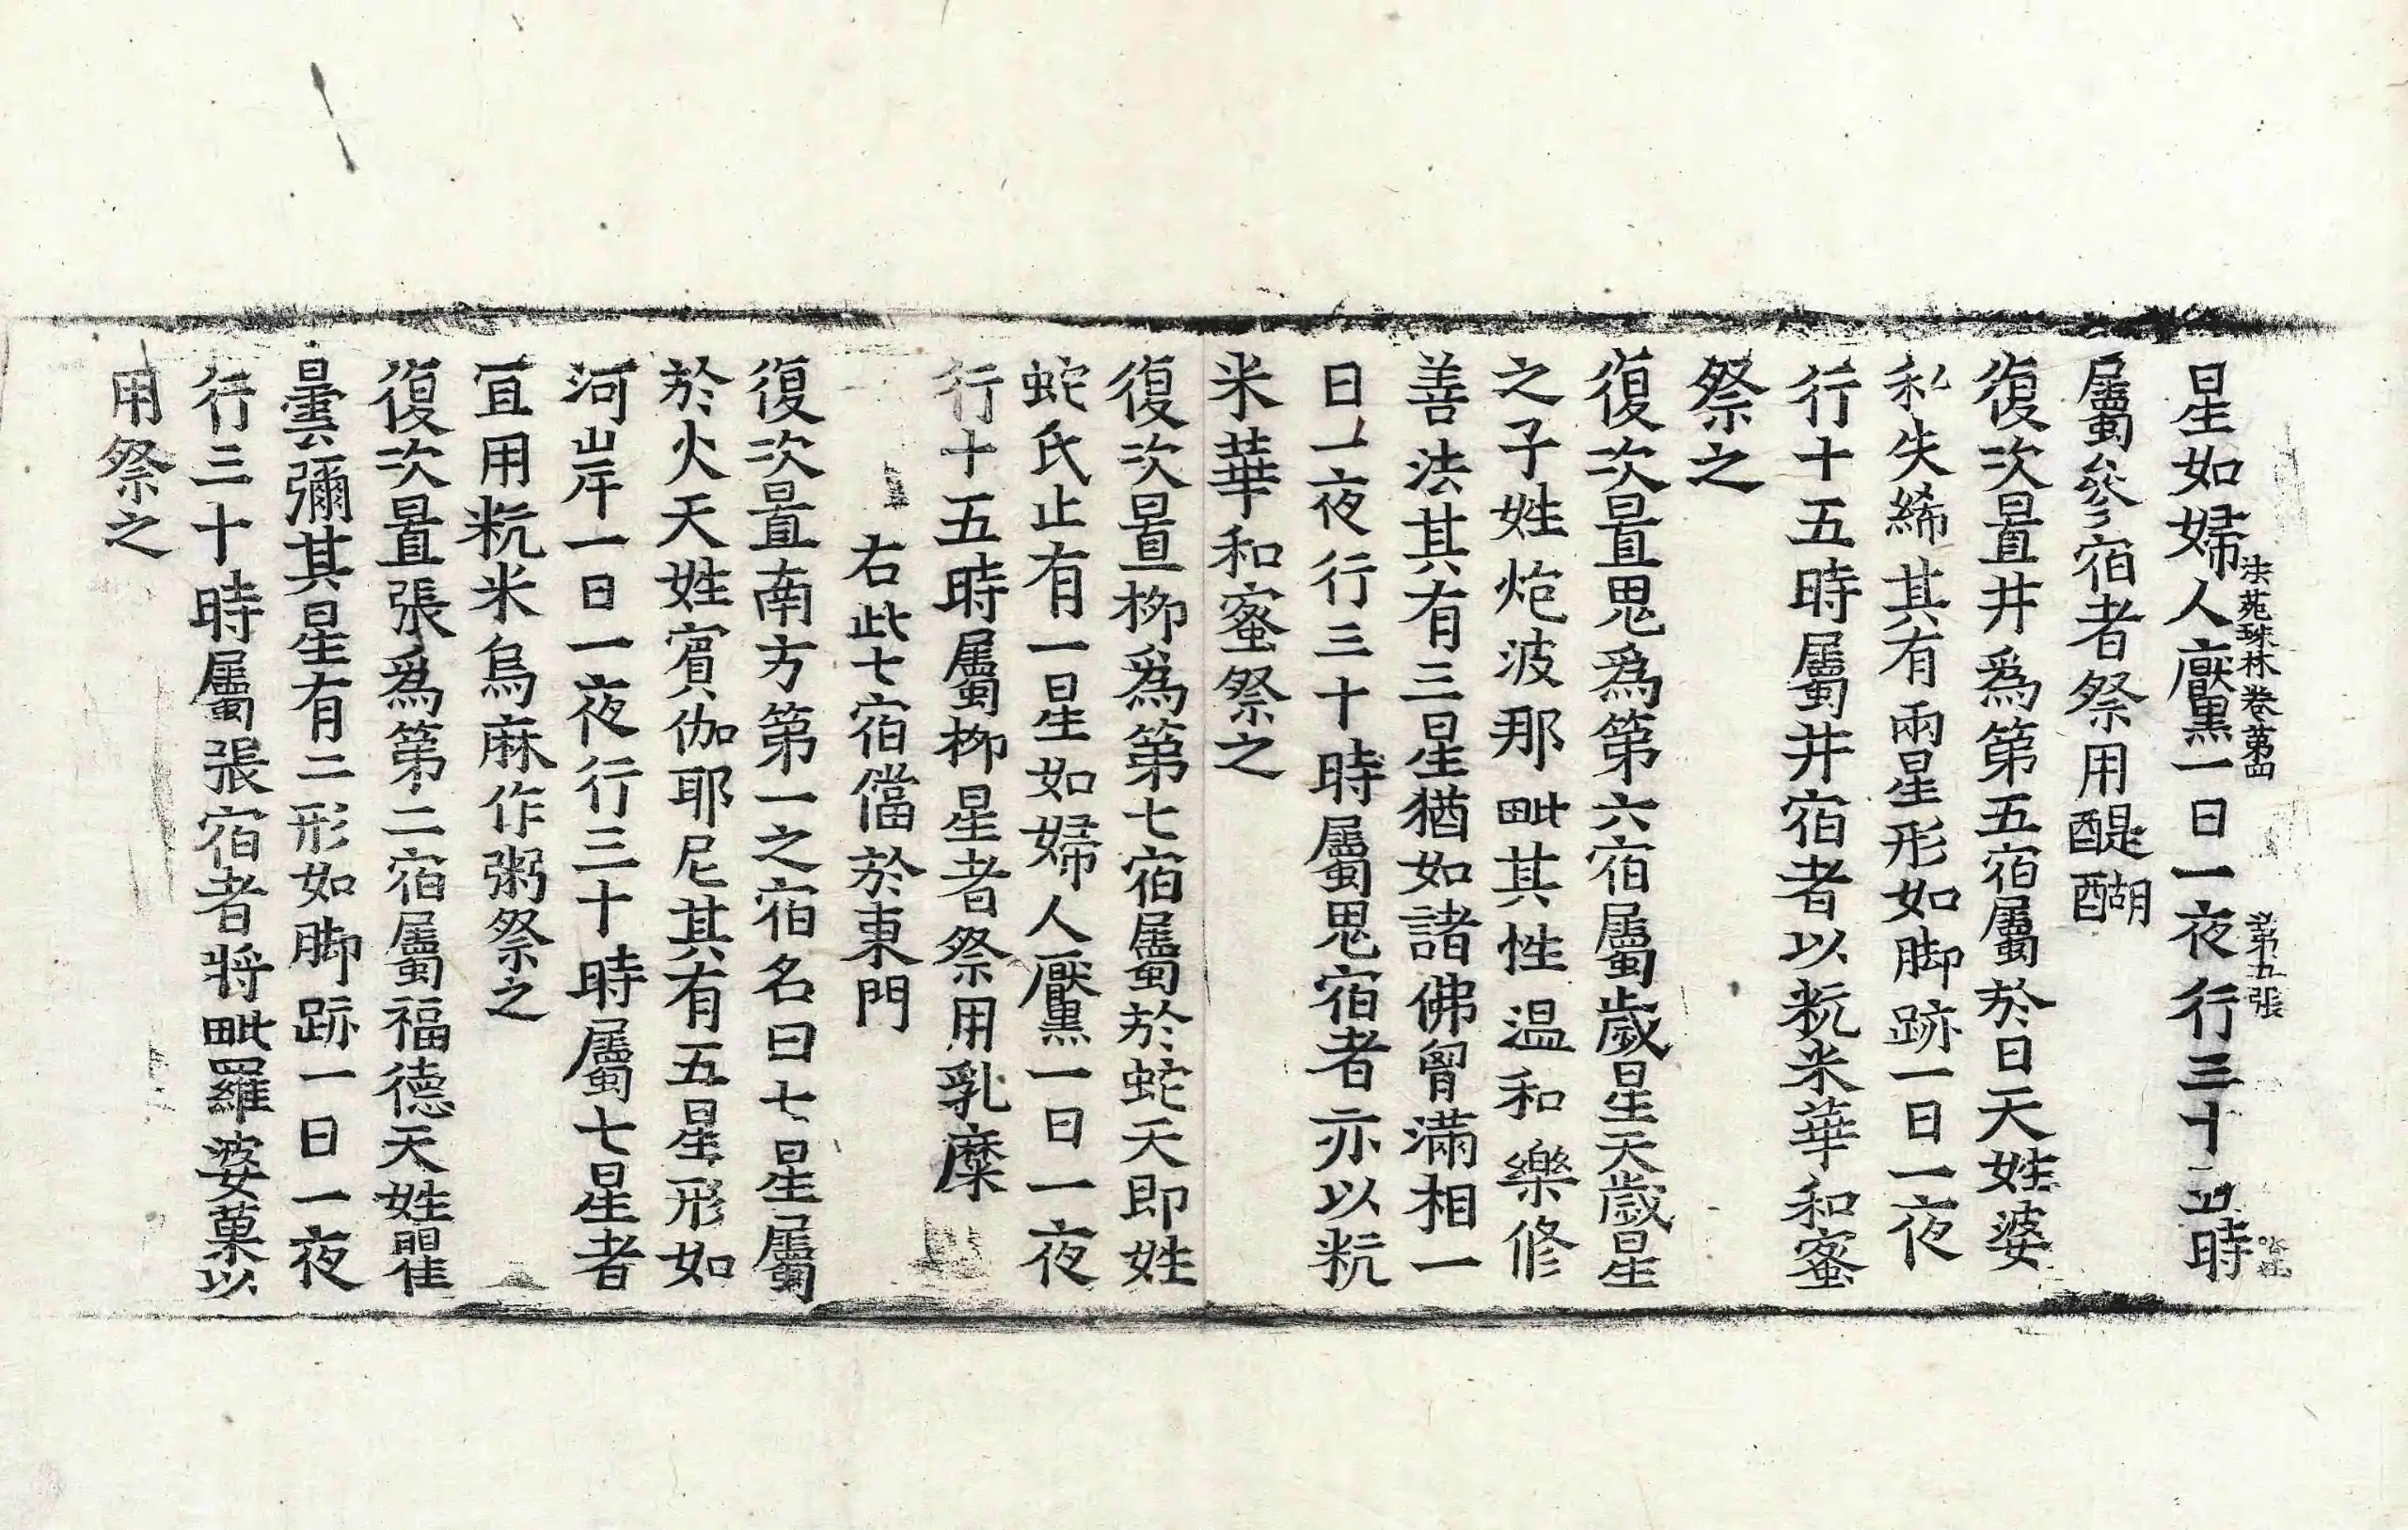 法苑珠林卷第四 第五張
星如婦人黶一日一夜行三十五時
屬參宿者祭用醍醐
復次置井爲第五宿屬於日天姓婆
私失絺其有兩星形如脚跡一日一夜
行十五時屬井宿者以粇米華和蜜
祭之
復次置鬼爲第六宿屬歲星天歲星
之子姓炮波那毗其性温和樂修
善法其有三星猶如諸佛胷滿相一
日一夜行三十時屬鬼宿者亦以粇
米華和蜜祭之
復次置栁爲第七宿屬於虵天即姓
虵氏止有一星如婦人黶一日一夜
行十五時屬栁星者祭用乳糜
右此七宿儅於東門
復次置南方第一之宿名曰七星屬
於火天姓賔伽耶尼其有五星形如
河岸一日一夜行三十時屬七星者
冝用粇米烏麻作粥祭之
復次置張爲第二宿屬福德天姓瞿
曇彌其星有二形如脚跡一日一夜
行三十時屬張宿者將毗羅婆菓以
用祭之